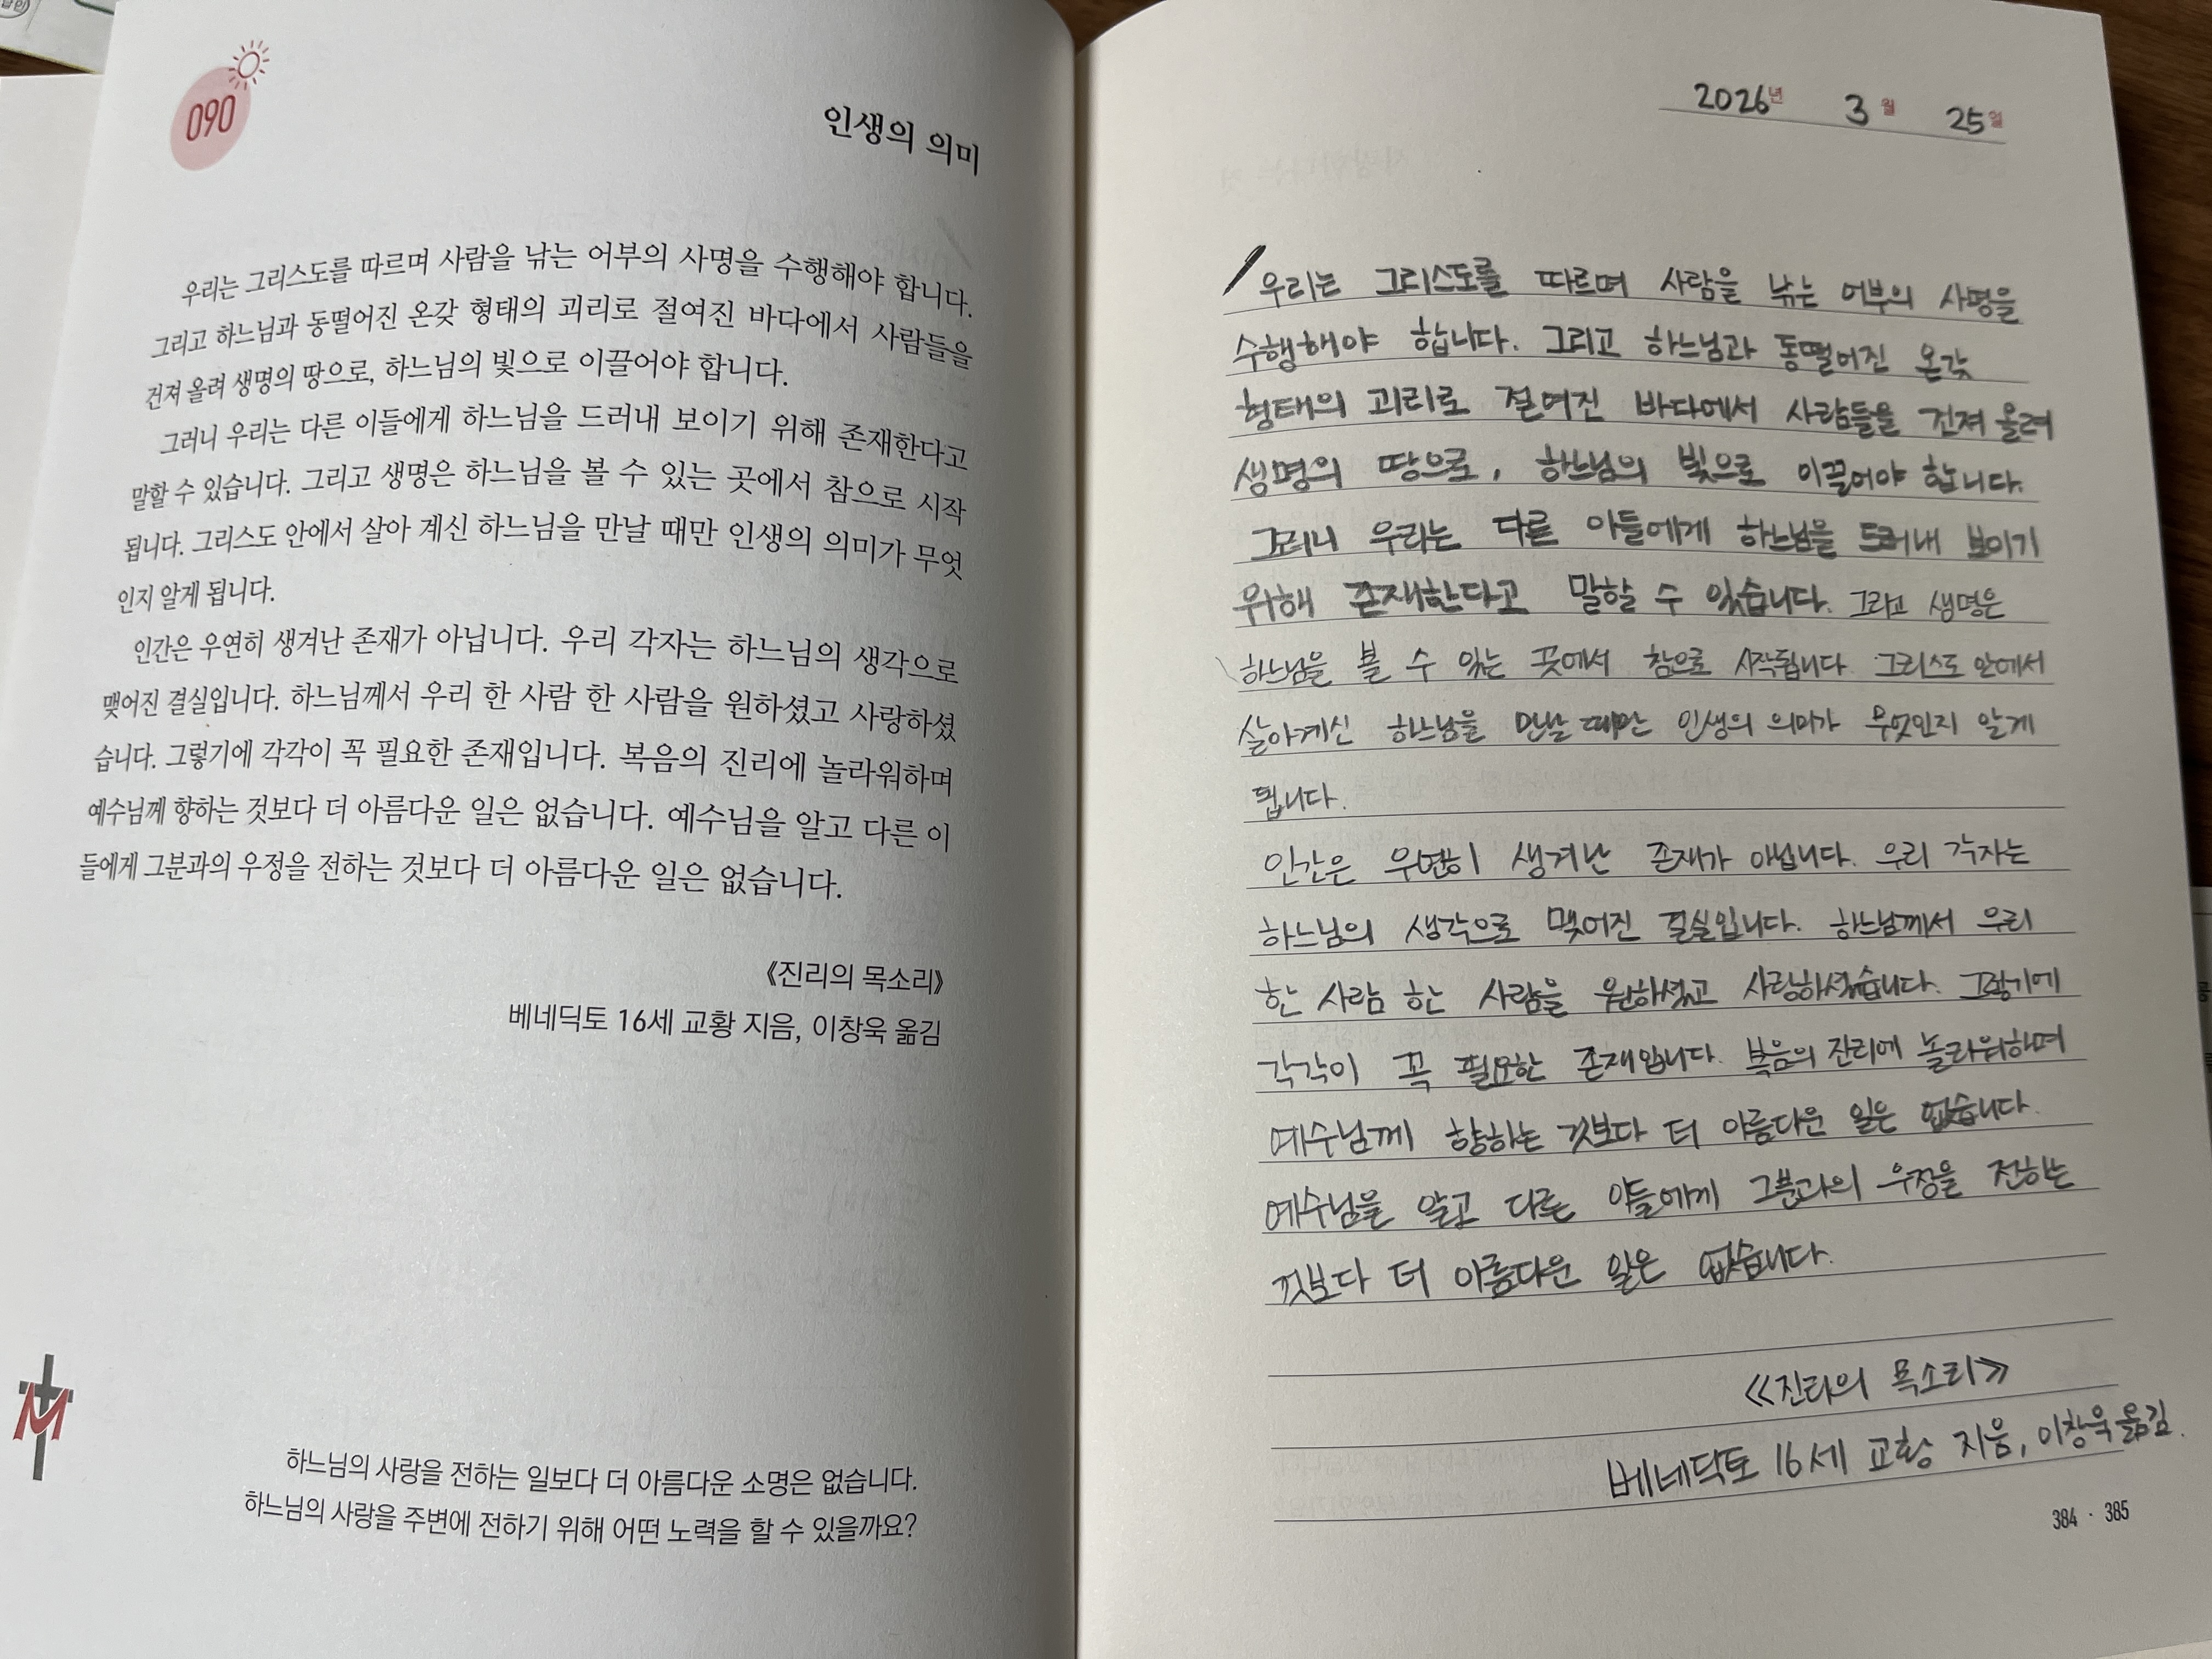 090
인생의 의미
우리는 그리스도를 따르며 사람을 낚는 어부의 사명을 수행해야 합니다.
그리고 하느님과 동떨어진 온갖 형태의 괴리로 절여진 바다에서 사람들을
건져 올려 생명의 땅으로, 하느님의 빛으로 이끌어야 합니다.
그러니 우리는 다른 이들에게 하느님을 드러내 보이기 위해 존재한다고
말할 수 있습니다. 그리고 생명은 하느님을 볼 수 있는 곳에서 참으로 시작
됩니다. 그리스도 안에서 살아 계신 하느님을 만날 때만 인생의 의미가 무엇
인지 알게 됩니다.
인간은 우연히 생겨난 존재가 아닙니다. 우리 각자는 하느님의 생각으로
맺어진 결실입니다. 하느님께서 우리 한 사람 한 사람을 원하셨고 사랑하셨
습니다. 그렇기에 각각이 꼭 필요한 존재입니다. 복음의 진리에 놀라워하며
예수님께 향하는 것보다 더 아름다운 일은 없습니다. 예수님을 알고 다른 이
들에게 그분과의 우정을 전하는 것보다 더 아름다운 일은 없습니다.
《진리의 목소리》
베네딕토 16세 교황 지음, 이창욱 옮김
M
하느님의 사랑을 전하는 일보다 더 아름다운 소명은 없습니다.
하느님의 사랑을 주변에 전하기 위해 어떤 노력을 할 수 있을까요?
2026년 3월 25일
우리는 그리스도를 따르며 사람을 낚는 어부의 사명을
수행해야 합니다. 그리고 하느님과 동떨어진 온갖
형태의 괴리로 절여진 바다에서 사람들을 건져 올려
생명의 땅으로, 하느님의 빛으로 이끌어야 합니다.
그러니 우리는 다른 이들에게 하느님을 드러내 보이기
위해 존재한다고 말할 수 있습니다. 그리고 생명은
하느님을 볼 수 있는 곳에서 참으로 시작됩니다. 그리스도 안에서
살아계신 하느님을 만날 때만 인생의 의미가 무엇인지 알게
됩니다.
인간은 우연히 생겨난 존재가 아닙니다. 우리 각자는
하느님의 생각으로 맺어진 결실입니다. 하느님께서 우리
한 사람 한 사람을 원하셨고 사랑하셨습니다. 그렇기에
각각이 꼭 필요한 존재입니다. 복음의 진리에 놀라워하며
예수님께 향하는 것보다 더 아름다운 일은 없습니다.
예수님을 알고 다른 이들에게 그분과의 우정을 전하는
것보다 더 아름다운 일은 없습니다.
《진리의 목소리》
베네딕토 16세 교황 지음, 이창욱 옮김.
384 · 385